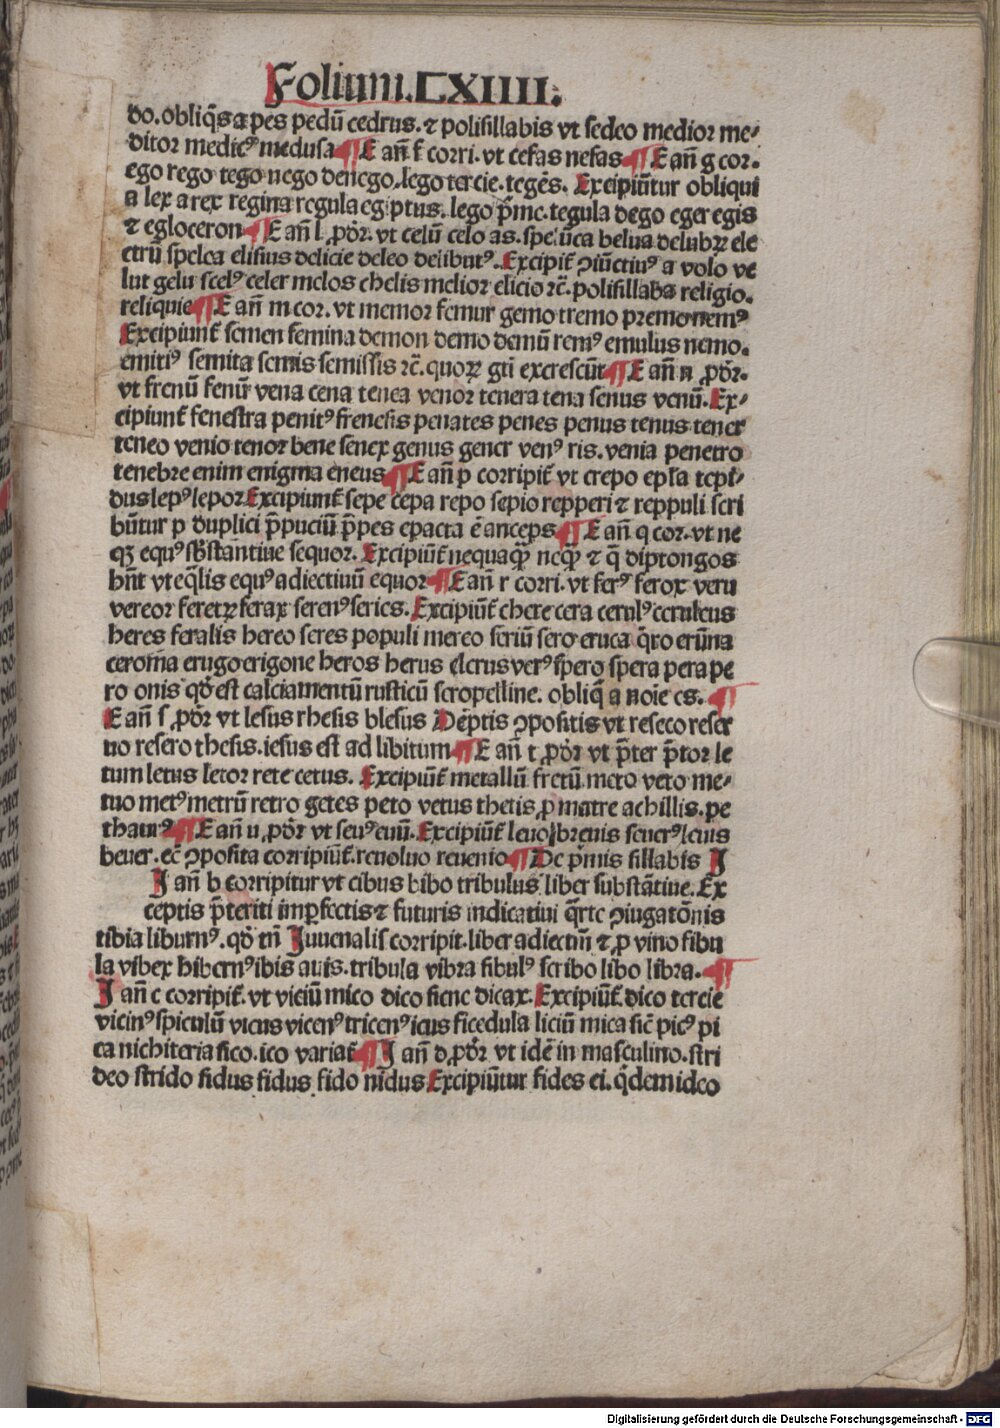 Folium.CXIIII.
do.obliq̄s a pes pedū cedrus.⁊ polisillabis vt sedeo medior me⸗
ditor medic⁹ medusa ¶ E an̄ f corri.vt cefas nefas ¶ E an̄ g cor.
ego rego tego nego denego.lego tercie.tegēs. Excipiūtur obliqui
a lex a rex regina regula egiptus.lego p̄me.tegula dego eger egis
⁊ egloceron ¶ E an̄ l ꝓdr̄.vt celū celo as.spelūca belua delubꝝ ele
ctrū spelea elisius delicie deleo delibut⁹.Excipit̄ ꝯiūctiu⁹ a volo ve
lut gelu scel⁹ celer melos chelis melior elicio ⁊c̄.polisillaba religio.
reliquie ¶ E an̄ m cor.vt memor femur gemo tremo premo nem⁹
Excipiunt̄ semen femina demon demo demū rem⁹ emulus nemo.
emiti⁹ semita semis semissis ⁊c̄.quoꝝ gti excrescūt ¶ E an̄ n ꝓdr̄.
vt frenū fenū vena cena tenea venor tenera tena senus venū.Ex⸗
cipiunt̄ fenestra penit⁹ frenesis penates penes penus tenus tener
teneo venio tenor bene senex genus gener ven⁹ ris.venia penetro
tenebre enim enigma eneus ¶ E an̄ p corripit̄ vt crepo epl̄a tepi⸗
dus lep⁹ lepor Excipiunt̄ sepe cepa repo sepio repperi ⁊ reppuli scri
būtur p duplici p̄puciū p̄pes epacta ē anceps ¶ E an̄ q cor.vt ne
qꝫ equ⁹ sb̄stantiue sequor. Excipiūt̄ nequaq̄ȝ neq̄ȝ ⁊ q̄ diptongos
hn̄t vt eq̄lis equ⁹ adiectiuū equor ¶ E an̄ r corri.vt fer⁹ ferox veru
vereor feretꝝ ferax seren⁹ series. Excipiūt̄ chere cera cerul⁹ ceruleus
heres feralis hereo seres populi mereo seriū sero eruca q̄ro erūna
ceroma erugo erigone heros herus elerus ver⁹ spero spera pera pe
ro onis qd̄ est calciamentū rusticū seropelline. obliq̄ a noīe es. ¶
E an̄ s ꝓdr̄ vt lesus rhesis blesus Dēptis ꝯpositis vt reseco reser
uo resero thesis.iesus est ad libitum ¶ E an̄ t ꝓdr̄ vt p̄ter p̄tor le
tum letus letor rete cetus. Excipiūt̄ metallū fretū meto veto me⸗
tuo met⁹ metrū retro getes peto vetus thetis ꝓ matre achillis.pe
thaur⁹ ¶ E an̄ u ꝓdr̄ vt seu⁹ euū. Excipiūt̄ leuo breuis seuer⁹ leuis
beuer.ec̄ ꝯposita corripiūt̄.reuoluo reuenio ¶ De p̄mis sillabis I
I an̄ b corripitur vt cibus bibo tribulus liber substātiue. Ex
ceptis p̄teriti imp̄fectis ⁊ futuris indicatiui q̄rte ꝯiugatōnis
tibia liburn⁹.qd̄ tn̄ Iuuenalis corripit.liber adiectiū ⁊ ꝓ vino fibu
la vibex hibern⁹ ibis auis.tribula vibra fibul⁹ scribo libo libra. ¶
I an̄ c corripit̄.vt viciū mico dico fiene dicax. Excipiūt̄.dico tercie
vicin⁹ spiculū vicus vicen⁹ tricen⁹ icus ficedula liciū mica sic̄ pic⁹ pi
ca nichiteria sico.ico variat̄ ¶ I an̄ d ꝓdr̄ vt idē in masculino.stri
deo strido sidus fidus fido nidus Excipiūtur fides ei.q̄dem ideo
Digitalisierung gefördert durch die Deutsche Forschungsgemeinschaft - DFG